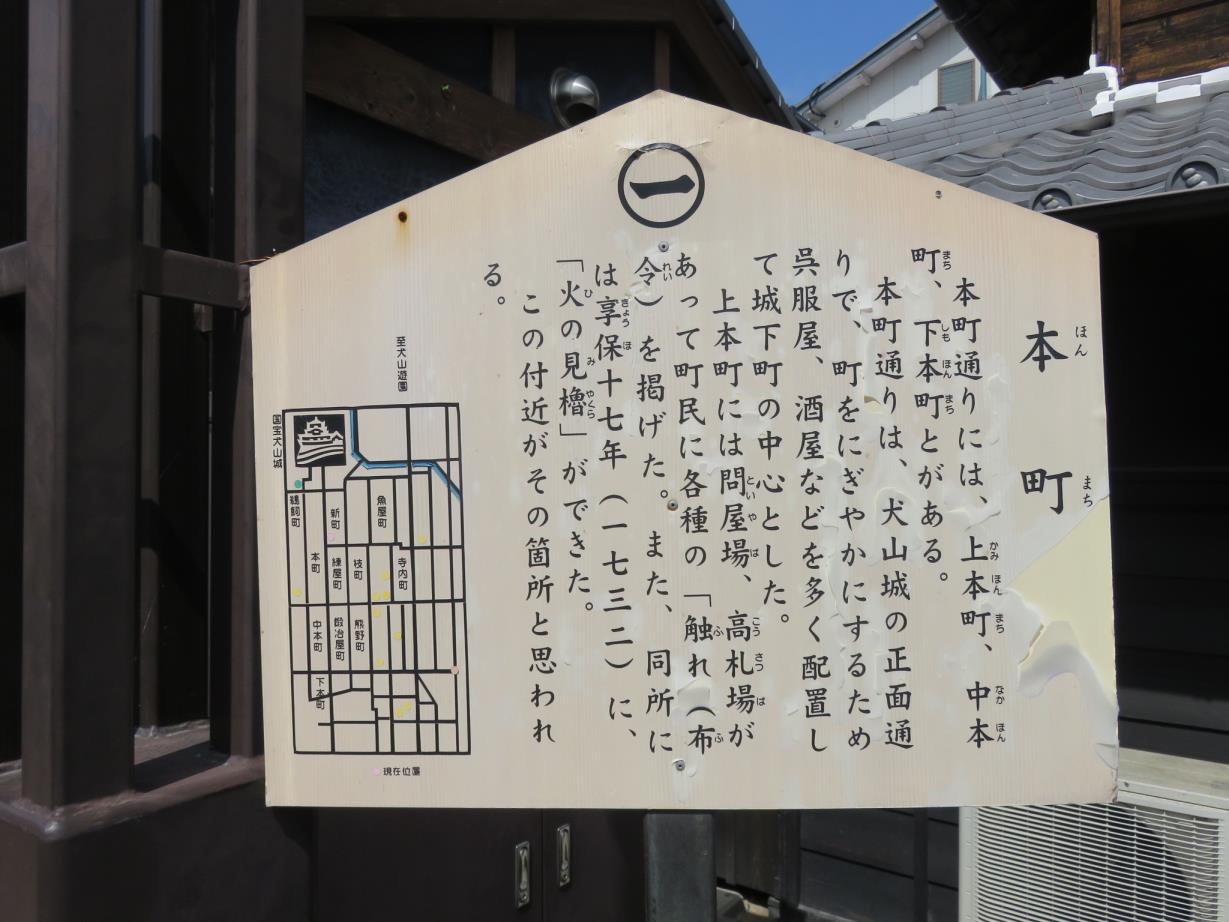 一
本町
ほんまち
本町通りには、上本町、中本
かみほんまち なかほん
町、下本町とがある。
まち しもほんまち
本町通りは、犬山城の正面通
りで、町をにぎやかにするため
呉服屋、酒屋などを多く配置し
て城下町の中心とした。
上本町には問屋場、高札場が
といやば こうさつば
あって町民に各種の「触れ（布
ふ ふ
令）を掲げた。また、同所に
れい
は享保十七年（一七三二）に、
きょうほ
「火の見櫓」ができた。
ひ み やぐら
この付近がその箇所と思われ
る。
至犬山遊園
国宝犬山城
鵜飼町
新町
魚屋町
本町
練屋町
枝町
寺内町
中本町
鍛冶屋町
熊野町
下本町
現在位置